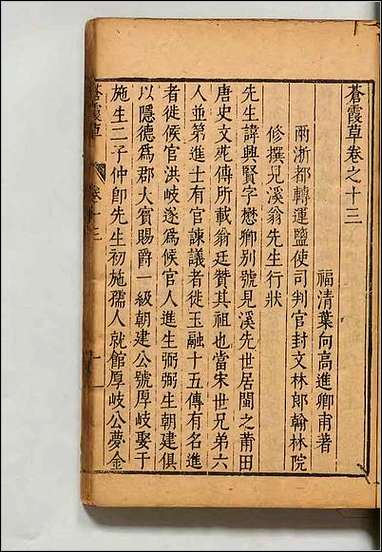 蒼霞草卷之十三
福清葉向高進卿甫著
兩浙都轉運鹽使司判官封文林郎翰林院
修撰見溪翁先生行狀
先生諱興賢字懋卿別號見溪先世居閩之莆田
唐史文苑傳所載翁廷贊其祖也當宋世兄弟六
人並第進士有官諫議者徙玉融十五傳有名進
者徙候官洪岐遂為候官人進生弼弼生朝建俱
以隱德為郡大賓賜爵一級朝建公號厚岐娶于
施生二子仲即先生初施孺人就館厚岐公夢金
蒼霞草
卷十三
一